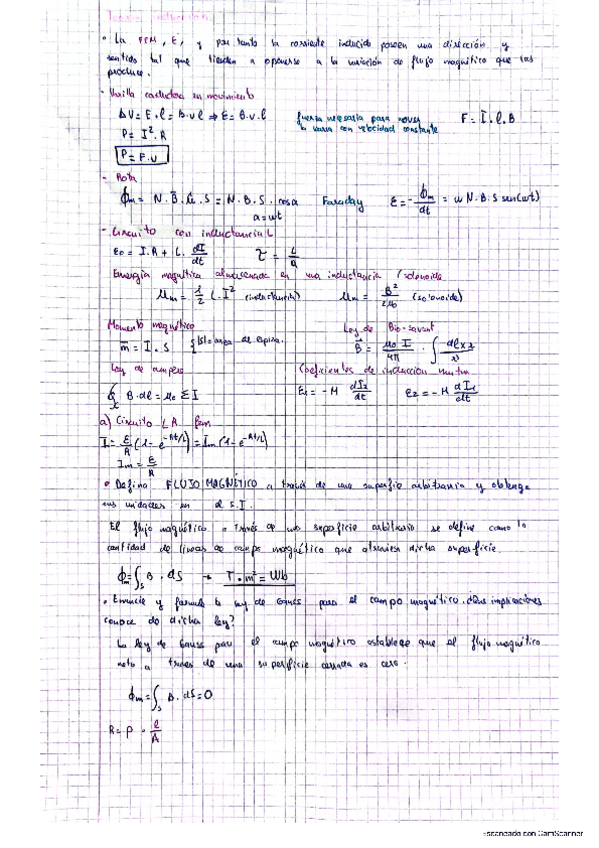 • La FEM, E, y por tanto la corriente inducida poseen una dirección y
sentidos tal que tienden a oponerse a la variación de flujo magnético que las
produce.
- Varilla conductora en movimiento
ΔV = E·l = B·v·l ⇒ E = B·v·l fuerza necesaria para mover F = I·l·B
P = I²·R la varia con velocidad constante
P = F·v
- Rota
ϕm = N·B·û·S = N·B·S·cosα Faraday ε = - ϕm/dt = w N·B·S sen(wt)
α = wt
- Circuito con inductancia L
ε0 = I·R + L· dI/dt τ = L/R
Energía magnética almacenada en una inductancia (solenoide
Um = 1/2 L·I² (inductancia) um = B²/2μ0 (solenoide)
Momento magnético Ley de Bio-savart
m = I·S {|S| = area de espira. B = μ0 I/4π · ∫ dl x r/r
Ley de ampere Coeficientes de inducción mutua
∮ B·dl = μ0 Σ I ε1 = -M dI2/dt ε2 = -M dI1/dt
a) Circuito LR fem
I = ε/R (1 - e^-Rt/L) = Im (1 - e^-Rt/L)
Im = ε/R
• Defina FLUJO MAGNÉTICO a través de una superficie arbitraria y obtenga
sus unidades en el S.I.
El flujo magnético a través de una superficie arbitraria se define como la
cantidad de líneas de campo magnético que atraviesa dicha superficie.
ϕm = ∫s B·dS → T·m² = Wb
• Enuncie y formule la ley de Gauss para el campo magnético. ¿Qué implicaciones
conoce de dicha ley?
La ley de Gauss para el campo magnético establece que el flujo magnético
neto a traves de una superficie cerrada es cero.
ϕm = ∫s B·dS = 0
R = ρ · l/A
Escaneado con CamScanner